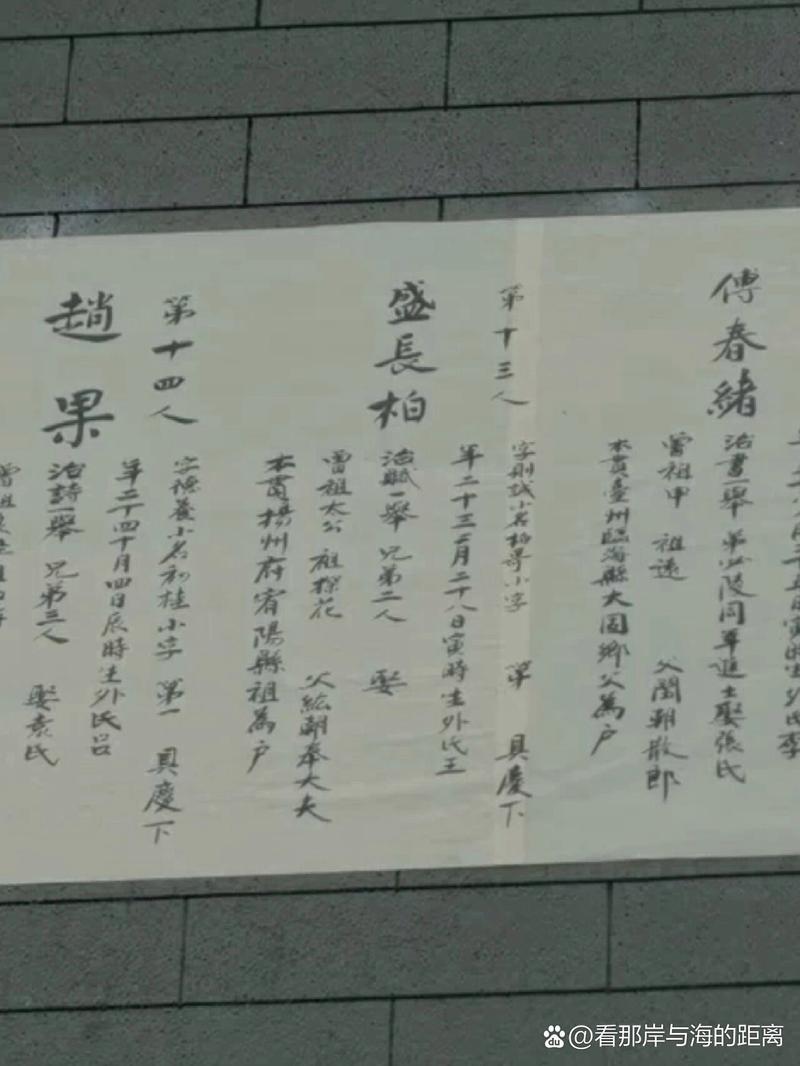 傅春緒
治書一舉 弟必陵同年進士娶張氏
曾祖甲 祖遠 父閎朝散郎
本貫臺州臨海縣大固鄉父為戶
第十三人
盛長柏
字則誠小名柏哥小字 第 具慶下
年二十三 月二十八日寅時生外氏王
治賦一舉 兄弟二人 娶
曾祖太公 祖探花 父紘朝奉大夫
本貫揚州府宥陽縣祖為戶
第十四人
趙果
字德養小名初桂小字 第一 具慶下
年二十四十月四日辰時生外氏呂
治詩一舉 兄弟三人 娶袁氏
@看那岸与海的距离